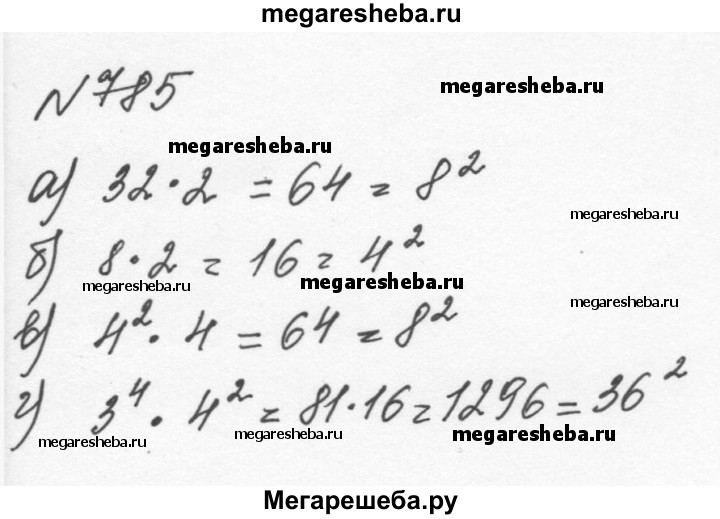 megaresheba.ru
№785
megaresheba.ru
megaresheba.ru
а) 32·2 = 64 = 8²
megaresheba.ru
б) 8·2 = 16 = 4²
megaresheba.ru
megaresheba.ru
megaresheba.ru
в) 4²·4 = 64 = 8²
г) 3⁴·4² = 81·16 = 1296 = 36²
megaresheba.ru
megaresheba.ru
megaresheba.ru
Мегарешеба.ру